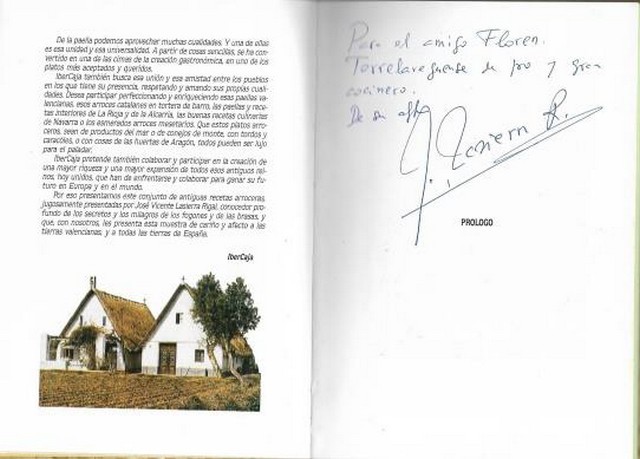 De la paella podemos aprovechar muchas cualidades. Y una de ellas
es esa unidad y esa universalidad. A partir de cosas sencillas, se ha con-
vertido en una de las cimas de la creación gastronómica, en uno de los
platos más aceptados y queridos.
IberCaja también busca esa unión y esa amistad entre los pueblos
en los que tiene su presencia, respetando y amando sus propias cuali-
dades. Desea participar perfeccionando y enriqueciendo esas paellas va-
lencianas, esos arroces catalanes en tartera de barro, las paellas y rece-
tas interiores de La Rioja y de la Alcarria, las buenas recetas culinarias
de Navarra o los esmerados arroces mesetarios. Que estos platos arro-
ceros, sean de productos del mar o de conejos de monte, con tordos y
caracoles, o con cosas de las huertas de Aragón, todos pueden ser lujo
para el paladar.
IberCaja pretende también colaborar y participar en la creación de
una mayor riqueza y una mayor expansión de todos esos antiguos rei-
nos, hoy unidos, que han de enfrentarse y colaborar para ganar su fu-
turo en Europa y en el mundo.
Por eso presentamos este conjunto de antiguas recetas arroceras,
jugosamente presentadas por José Vicente Lasierra Rigal, conocedor pro-
fundo de los secretos y los milagros de los fogones y de las brasas, y
que, con nosotros, les presenta esta muestra de cariño y afecto a las
tierras valencianas, y a todas las tierras de España.
IberCaja
Para el amigo Floren.
Torrelaveguense de pro y gran
cocinero.
De su afto
J. Lasierra R.
PROLOGO